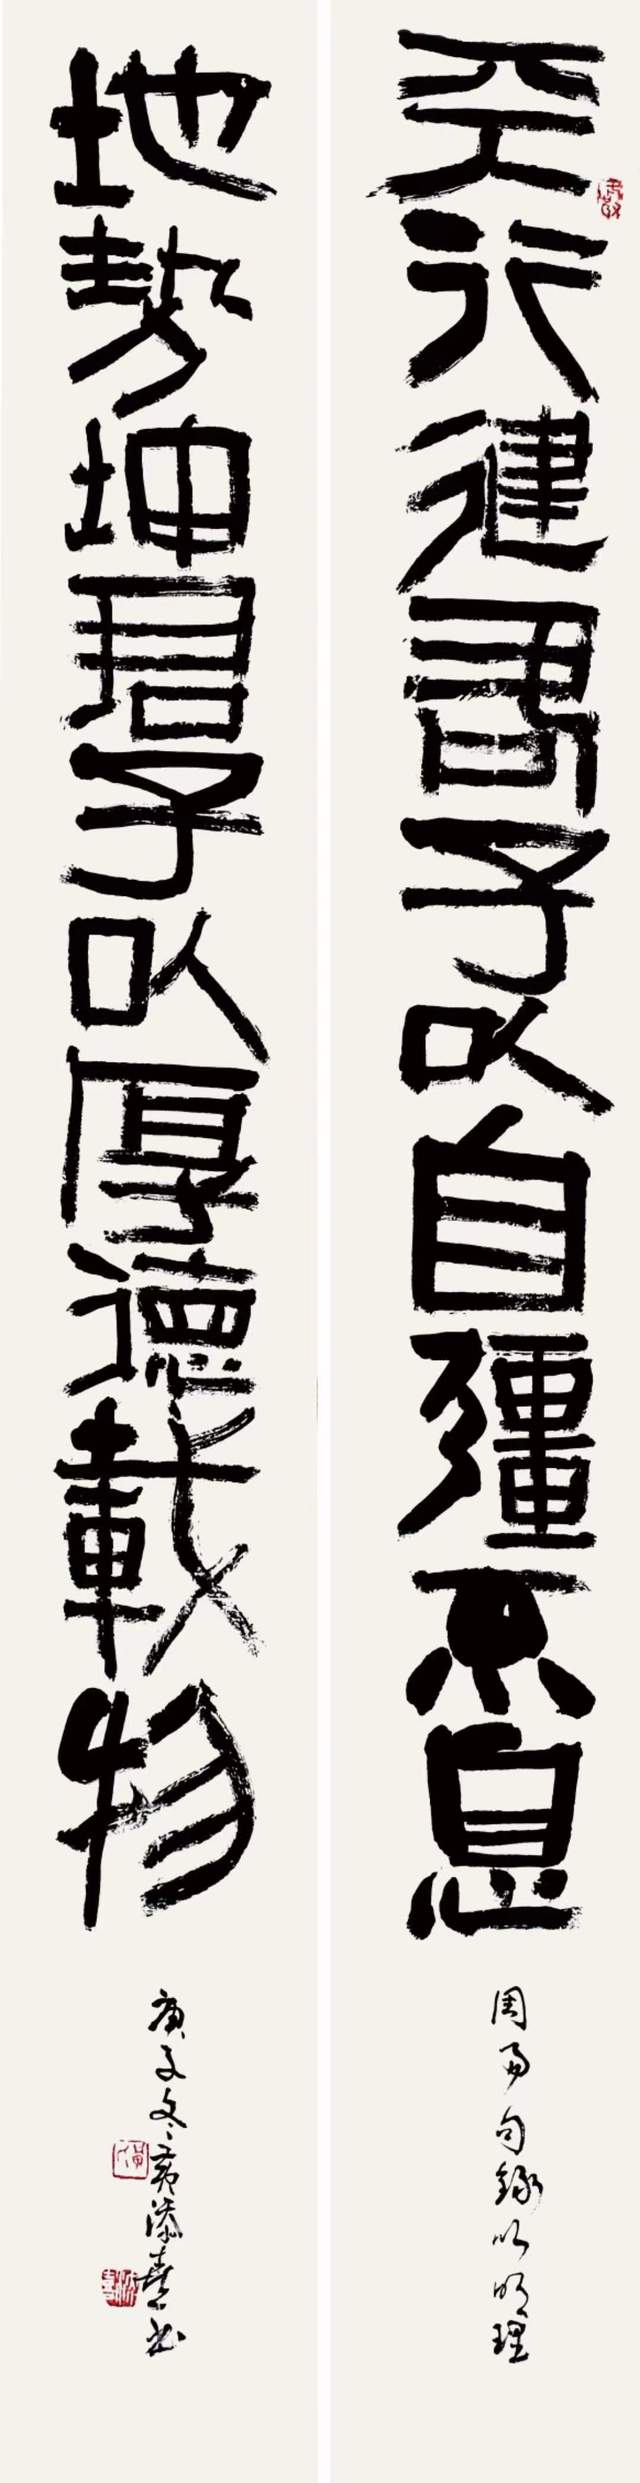 天行健君子以自彊不息
周易句錄以明理
地勢坤君子以厚德載物
庚子冬黃添喜书